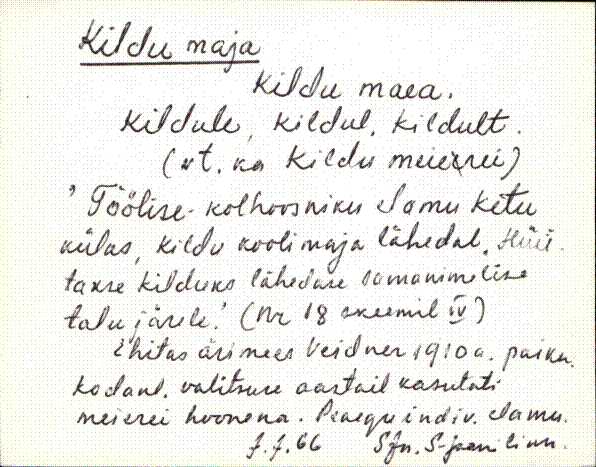 Kildu maja
Kildu maea.
Kildule, Kildul, Kildult.
(vt. ka Kildu meierei)
" Töölise-kolhoosniku elamu Ketu
külas, Kildu koolimaja lähedal. Hüü-
takse Kilduks läheduse samanimelise
talu järele." (Nr 18 skeemil IV)
Ehitas ärimees Veidner 1910 a. paiku.
Kodanl. valitsuse aastail kasutati
meierei hoonena. Praegu indiv. elamu.
7.7.66